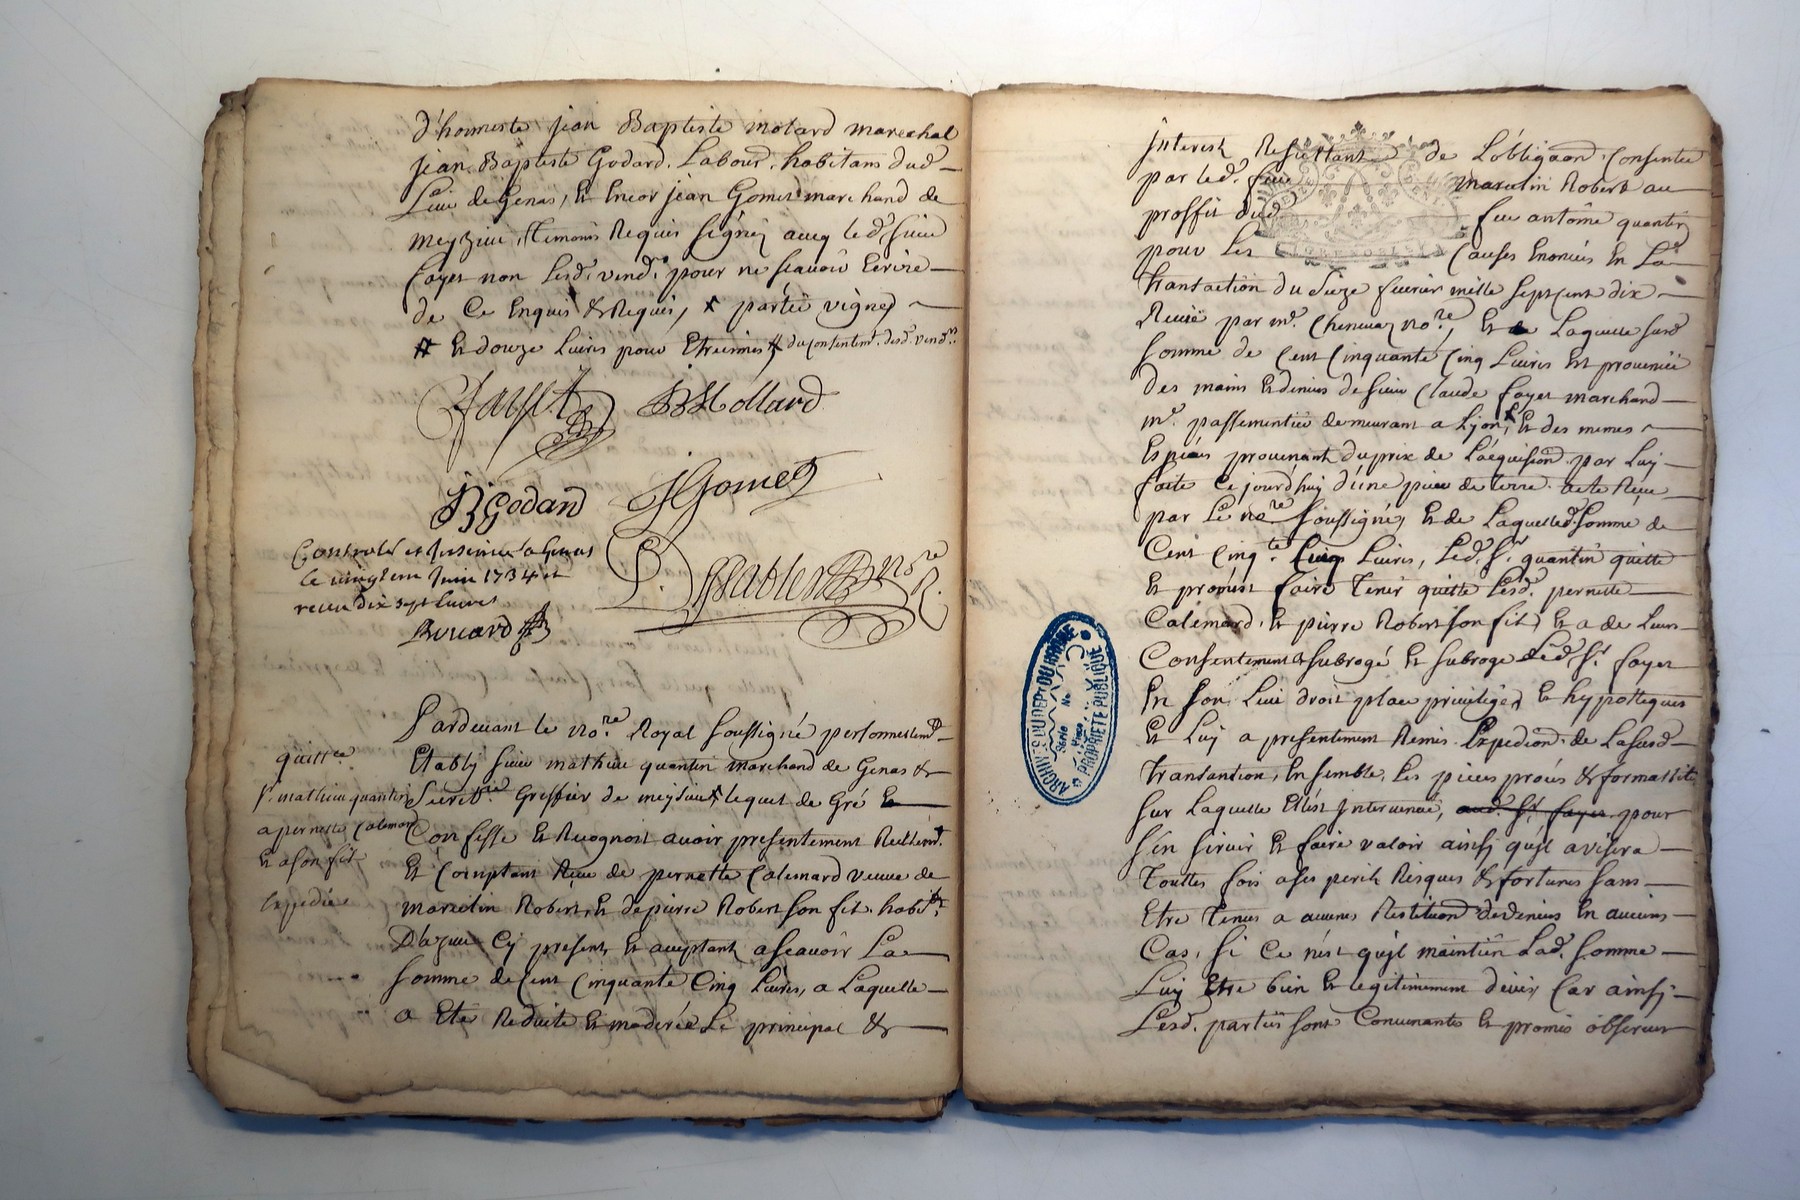 d'honneste jean Baptiste molard marechal
jean Baptiste Godard, Labour. habitans dud.
Lieu de Genas, Et Encor jean Gomet marchand de
meyzieu, temoins Requis signéz avec led. sieur
fayet non lesd. vend. pour ne scavoir Ecrire
de Ce Enquis & Requis, partie vigne
Et douze Livres pour Etreinnes du Consentem.t desd. vend.rs
Fayet JBMollard
JBGodard JGomet
Controlé et Insinué a Genas
le vingt Juin 1734 et
receu dix sept livres
Bouard
no.re R.
Pardevant le no.re Royal soussigné personnellem.t
quitt.ce
Etably sieur mathieu quantin marchand de Genas &
s.r mathieu quantin
Secret.re Greffier de meysieu lequel de Gré Et
a pernette Calemard
Confesse Et Recognoit avoir presentement Reellem.t
Et a son fils
Et Comptant Reçu de pernette Calemard veuve de
Expédiée
marcelin Robert, Et de pierre Robert son fils habit.
Cy present, Et acceptant ascavoir La
somme de Cent Cinquante Cinq Livres, a Laquelle
a Eté Reduite Et moderée Le principal &
Interest Resultant de L'obligaon. Consentie
par led. feu marcelin Robert au
proffit dud. feu antoine quantin
pour Les Causes Enoncées En La
transaction du seize fevrier mille sept cent dix
Reçue par m.e no.re, Et Laquelle susd.
somme de Cent Cinquante Cinq Livres Est provenüe
des mains Et deniers de sieur Claude fayet marchand
m.e passementier demeurant a Lyon, Et des memes
Espéces provenant du prix de L'acquision. par Luy
faite Ce jourd'huy d'une piece de terre acte Reçu
par Le no.re soussigné, Et de Laquelle d. somme de
Cent Cinq.te Cinq Livres, Led. s.r quantin quitte
Et promest faire tenir quitte Lesd. pernette
Calemard, Et pierre Robert son fils, Et a de Leurs
Consentement subrogé Et subroge led. s.r fayet
En son Lieu droit place privilège, Et hypotteques
Et Luy a presentement Remis Expedion. de Lasusd.
transantion, Ensemble, Les pieces procés & formalités
sur Laquelle Elle est Intervenuë, aud. s.r fayet pour
s'en servir Et faire valoir ainsy qu'il avisera
touttes fois a ses perils Risques & fortunes sans
Etre tenus a aucunes Restituon. de deniers En aucuns
Cas, si Ce n'est qu'il maintien Lad. somme
Luy Etre bien Et legitimement deüe, Car ainsy
Lesd. parties sont Convenantes Et promis observer
ARCHIVES DU DEPt DU RHÔNE
Série No
Pièce
PROPRIÉTÉ PUBLIQUE